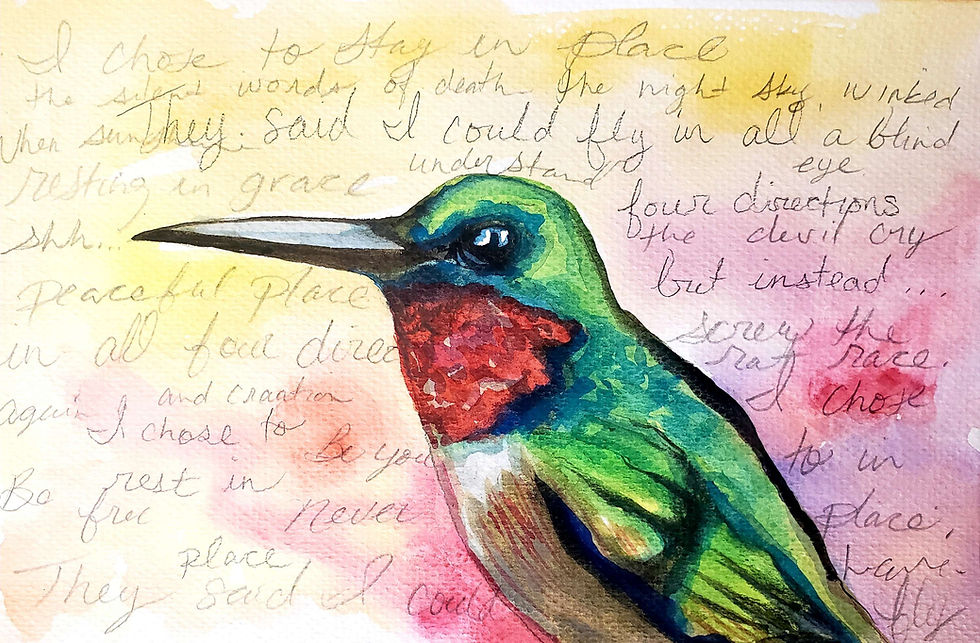 I chose to stay in place
the silent words of death the night sky, winked
When They said I could fly in all a blind
resting in grace understand eye.
four directions
shh... the devil cry
but instead...
peaceful place
screw the
in all four direc
rat race.
again and craation I chose
I chose to
Be you
to in
Be rest in
free never place,
place
They said I could
fly